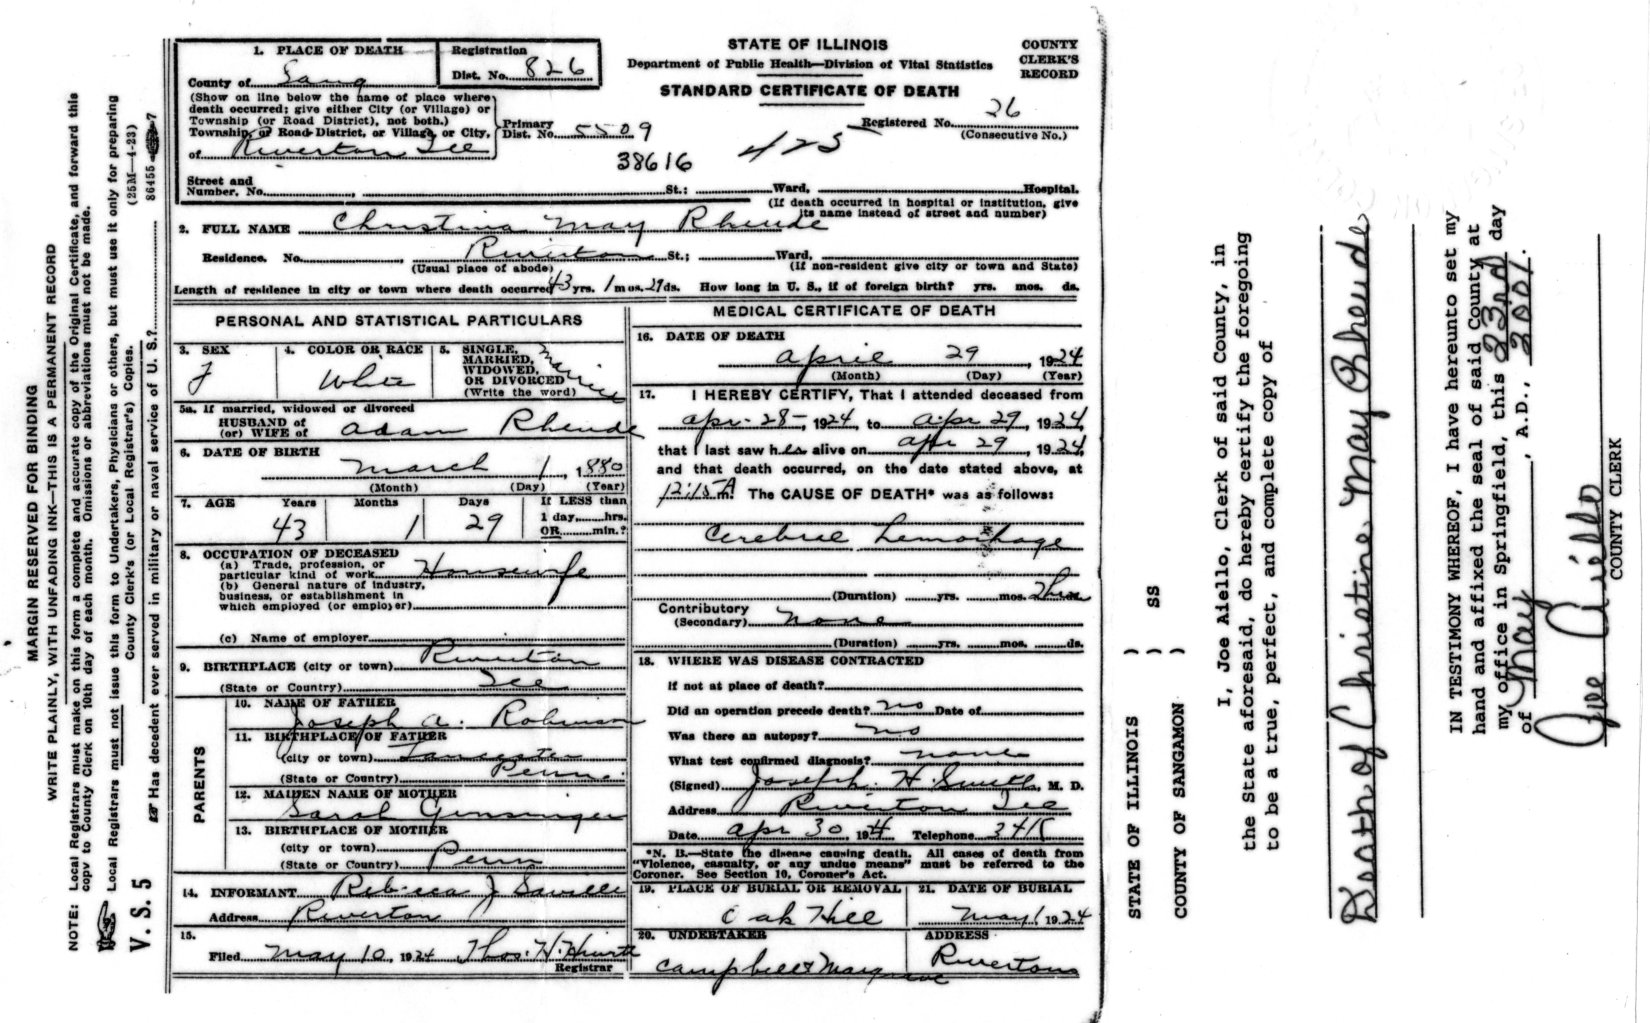 MARGIN RESERVED FOR BINDING
WRITE PLAINLY, WITH UNFADING INK—THIS IS A PERMANENT RECORD
NOTE: Local Registrars must make on this form a complete and accurate copy of the Original Certificate, and forward this
copy to County Clerk on 10th day of each month. Omissions or abbreviations must not be made.
Local Registrars must not issue this form to Undertakers, Physicians or others, but must use it only for preparing
County Clerk's (or Local Registrar's) Copies.
(25M—4-23)
V. S. 5
Has decedent ever served in military or naval service of U. S.?
86455 7
1. PLACE OF DEATH
County of Sang
Registration
Dist. No. 826
(Show on line below the name of place where
death occurred; give either City (or Village) or
Township (or Road District), not both.)
Township, or Road District, or Village, or City,
of Riverton Ill
Primary
Dist. No. 5509
38616
425
STATE OF ILLINOIS
Department of Public Health—Division of Vital Statistics
STANDARD CERTIFICATE OF DEATH
COUNTY
CLERK'S
RECORD
Registered No. 26
(Consecutive No.)
Street and
Number, No. , St.; Ward, Hospital.
(If death occurred in hospital or institution, give
its name instead of street and number)
2. FULL NAME Christina May Rheude
Residence. No. , Riverton St.; Ward,
(Usual place of abode) (If non-resident give city or town and State)
Length of residence in city or town where death occurred 43 yrs. 1 mos. 29 ds. How long in U. S., if of foreign birth? yrs. mos. ds.
PERSONAL AND STATISTICAL PARTICULARS
3. SEX
F
4. COLOR OR RACE
White
5. SINGLE,
MARRIED,
WIDOWED,
OR DIVORCED
(Write the word)
Married
5a. If married, widowed or divorced
HUSBAND of
(or) WIFE of Adam Rheude
6. DATE OF BIRTH
March 1, 1880
(Month) (Day) (Year)
7. AGE Years Months Days If LESS than
43 1 29 1 day, hrs.
OR min.?
8. OCCUPATION OF DECEASED
(a) Trade, profession, or
particular kind of work Housewife
(b) General nature of industry,
business, or establishment in
which employed (or employer)
(c) Name of employer
9. BIRTHPLACE (city or town) Riverton
(State or Country) Ill
PARENTS
10. NAME OF FATHER
Joseph A. Robinson
11. BIRTHPLACE OF FATHER
(city or town) Lancaster
(State or Country) Penna.
12. MAIDEN NAME OF MOTHER
Sarah Ginsinger
13. BIRTHPLACE OF MOTHER
(city or town)
(State or Country) Penn
14. INFORMANT Rebecca J Saville
Address Riverton
15.
Filed May 10, 1924 Thos. H.
Registrar
MEDICAL CERTIFICATE OF DEATH
16. DATE OF DEATH
April 29, 1924
(Month) (Day) (Year)
17. I HEREBY CERTIFY, That I attended deceased from
Apr. 28, 1924, to Apr 29, 1924,
that I last saw her alive on Apr 29, 1924,
and that death occurred, on the date stated above, at
12:15 A m. The CAUSE OF DEATH* was as follows:
Cerebral Hemorhage
(Duration) yrs. mos.
Contributory
(Secondary) none
(Duration) yrs. mos. ds.
18. WHERE WAS DISEASE CONTRACTED
if not at place of death?
Did an operation precede death? no Date of
Was there an autopsy? no
What test confirmed diagnosis? none
(Signed) Joseph H. Smith, M. D.
Address Riverton Ill
Date Apr 30, 1924 Telephone
*N. B.—State the disease causing death. All cases of death from
"Violence, casualty, or any undue means" must be referred to the
Coroner. See Section 10, Coroner's Act.
19. PLACE OF BURIAL OR REMOVAL
Oak Hill
21. DATE OF BURIAL
May 1 1924
20. UNDERTAKER
Campbell &
ADDRESS
Riverton
STATE OF ILLINOIS )
) SS
COUNTY OF SANGAMON )
I, Joe Aiello, Clerk of said County, in
the State aforesaid, do hereby certify the foregoing
to be a true, perfect, and complete copy of
Death of Christine May Rheude
IN TESTIMONY WHEREOF, I have hereunto set my
hand and affixed the seal of said County at
my office in Springfield, this 23rd day
of May, A.D., 2001.
Joe Aiello
COUNTY CLERK